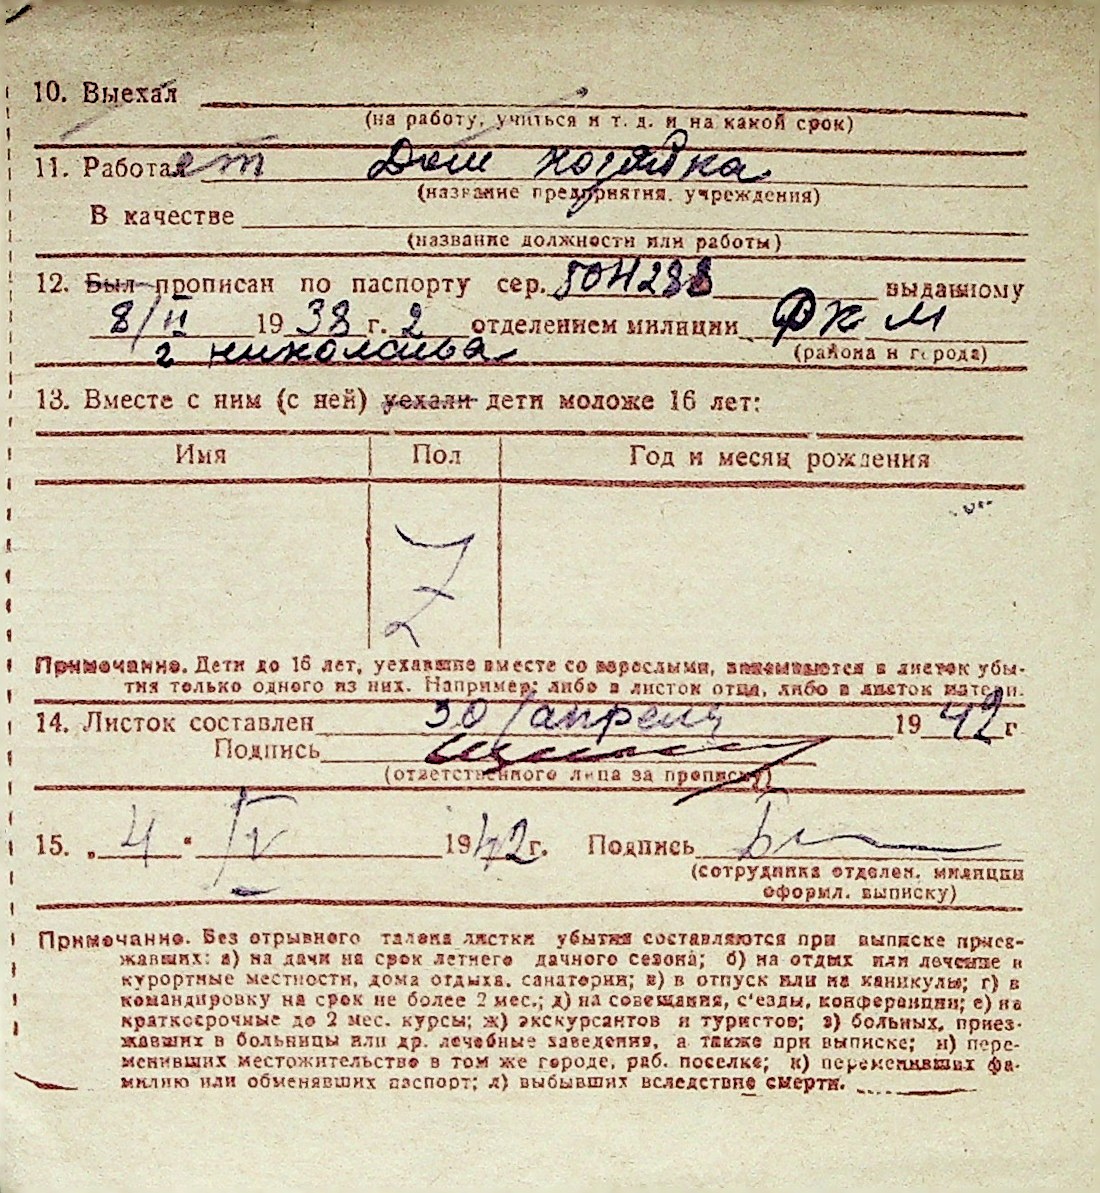 10. Выехал
(на работу, учиться и т. д. и на какой срок)
11. Работает Дом хозяйка
(название предприятия, учреждения)
В качестве
(название должности или работы)
12. Был прописан по паспорту сер. выданному
8/II 1938 г. 2 отделением милиции РКМ
г Николаева (района и города)
13. Вместе с ним (с ней) уехали дети моложе 16 лет:
Имя Пол Год и месяц рождения
Z
Примечание. Дети до 16 лет, уехавшие вместе со взрослыми, вписываются в листок убы-
тия только одного из них. Например: либо в листок отца, либо в листок матери.
14. Листок составлен 30/апреля 1942 г
Подпись
(ответственного лица за прописку)
15. „4“ IV 1942 г. Подпись
(сотрудника отделен. милиции
оформл. выписку)
Примечание. Без отрывного талона листки убытия составляются при выписке приез-
жавших: а) на дачи на срок летнего дачного сезона; б) на отдых или лечение в
курортные местности, дома отдыха, санатории; в) в отпуск или на каникулы; г) в
командировку на срок не более 2 мес.; д) на совещания, с'езды, конференции; е) на
краткосрочные до 2 мес. курсы; ж) экскурсантов и туристов; з) больных, приез-
жавших в больницы или др. лечебные заведения, а также при выписке; и) пере-
менивших местожительство в том же городе, раб. поселке; к) переменивших фа-
милию или обменявших паспорт; л) выбывших вследствие смерти.